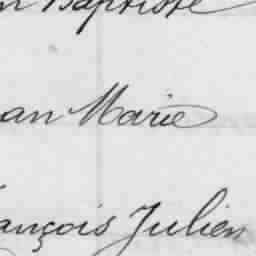 n Baptiste
an Marie
ançois Julien